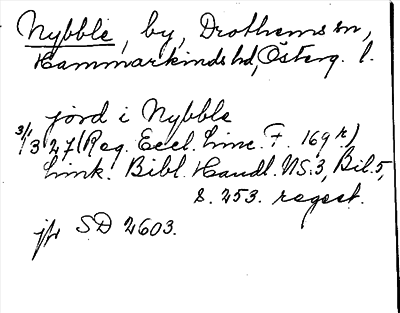 Nybble, by, Drothems sn,
Hammarkinds hd, Österg. l.
jord i Nybble
3/1 327 (Reg. Eccl. Linc. F. 169 r)
Link. Bibl. Handl. NS. 3, Bil. 5,
s. 253. regest.
jfr SD 2603.